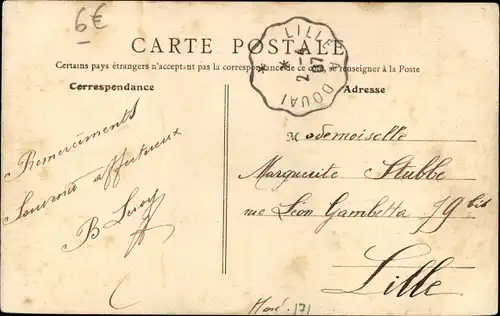 6€
CARTE POSTALE
Certains pays étrangers n'acceptant pas la correspondance de ce se renseigner à la Poste
LILLE A DOUAI
2-4
07
Correspondance
Adresse
Remerciments
Souvenir affectueux
B Leroy
Mademoiselle
Marguerite Stubbe
rue Léon Gambetta 79 bis
Lille
171